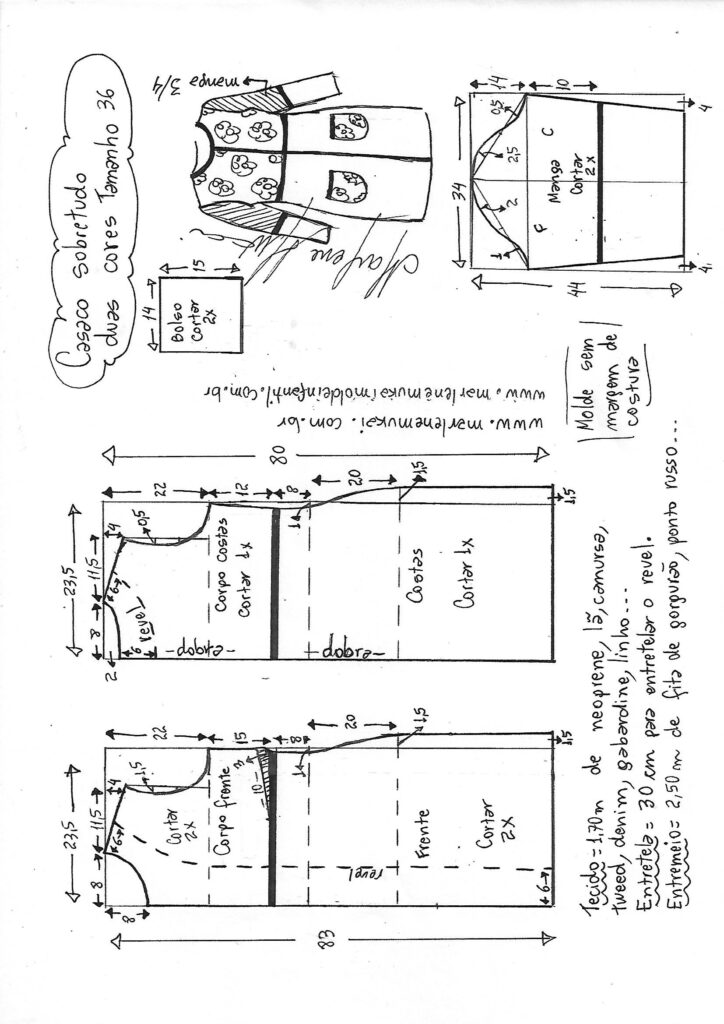 Casaco sobretudo
duas cores Tamanho 36
manga 3/4
Marlene Mukai
15
14
Bolso
Cortar
2x
34
14
10
0,5
2,5
2
1
F
C
Manga
Cortar
2x
44
4
4
www.marlenemukaimoldeinfantil.com.br
www.marlenemukai.com.br
Molde sem
margem de
costura
80
22
12
8
20
1,5
23,5
11,5
8
4
0,5
6
6
revel
2
1
Corpo costas
Cortar 1x
-dobra-
-dobra-
Costas
Cortar 1x
1,5
83
22
15
8
20
1,5
23,5
11,5
8
8
4
1,5
6
Cortar
2x
Corpo frente
10
3
1
revel
Frente
Cortar
2x
6
1,5
Tecido = 1,70 m de neoprene, lã, camurça,
tweed, denim, gabardine, linho...
Entretela = 30 cm para entretelar o revel.
Entremeio = 2,50 m de fita de gorgurão, ponto russo...